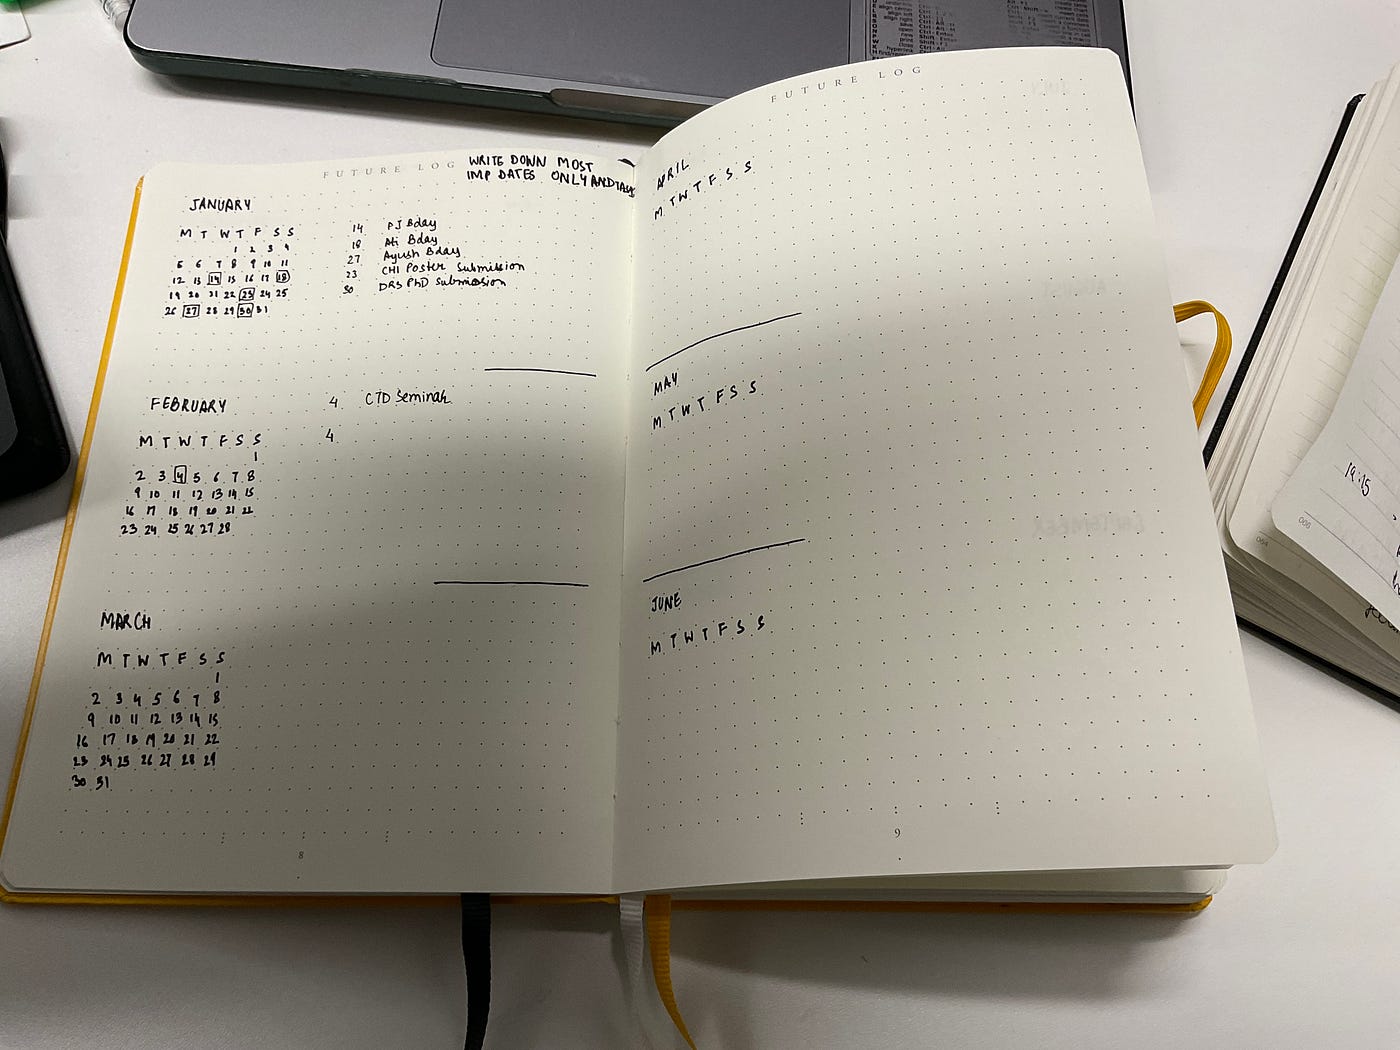 FUTURE LOG
WRITE DOWN MOST
IMP DATES ONLY AND
JANUARY
M T W T F S S
1 2 3 4
5 6 7 8 9 10 11
12 13 14 15 16 17 18
19 20 21 22 23 24 25
26 27 28 29 30 31
14 PJ Bday
18 Ati Bday
27 Ayush Bday
23 CHI Poster Submission
30 DRS PhD Submission
FEBRUARY
M T W T F S S
1
2 3 4 5 6 7 8
9 10 11 12 13 14 15
16 17 18 19 20 21 22
23 24 25 26 27 28
4 CTD Seminar
4
MARCH
M T W T F S S
1
2 3 4 5 6 7 8
9 10 11 12 13 14 15
16 17 18 19 20 21 22
23 24 25 26 27 28 29
30 31
8
FUTURE LOG
APRIL
M T W T F S S
MAY
M T W T F S S
JUNE
M T W T F S S
9
19:15